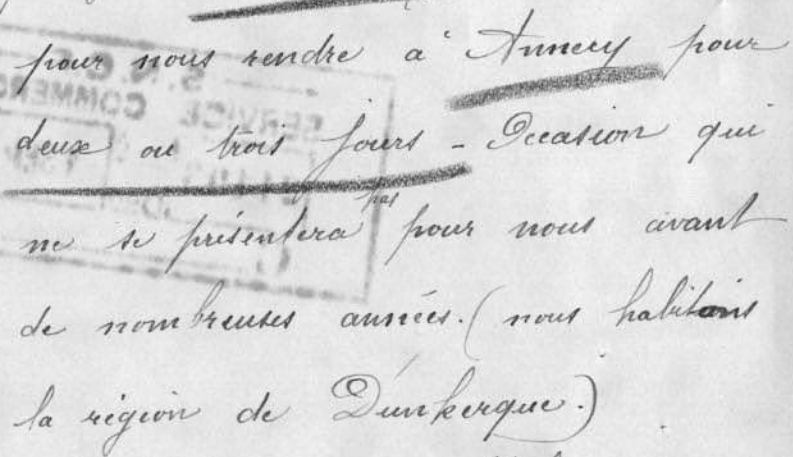 pour nous rendre à Annecy pour
deux ou trois jours - Occasion qui
ne se présentera pas pour nous avant
de nombreuses années. (nous habitons
la région de Dunkerque.)
S.N.C.F.
SERVICE
COMMERC